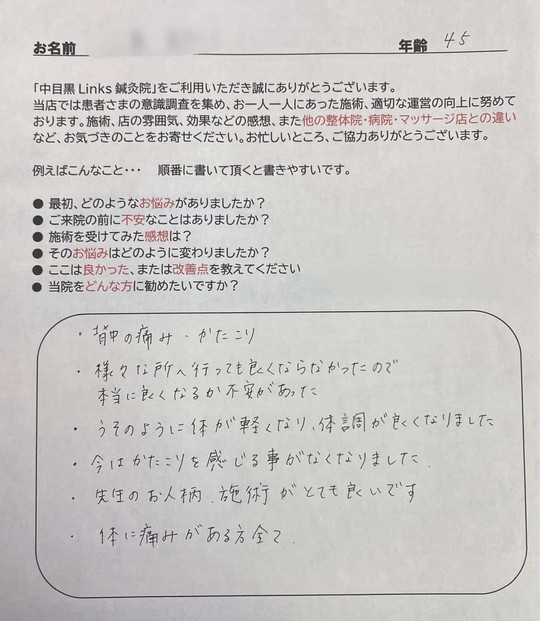 お名前
年齢 45
「中目黒Links鍼灸院」をご利用いただき誠にありがとうございます。
当店では患者さまの意識調査を集め、お一人一人にあった施術、適切な運営の向上に努めて
おります。施術、店の雰囲気、効果などの感想、また他の整体院・病院・マッサージ店との違い
など、お気づきのことをお寄せください。お忙しいところ、ご協力ありがとうございます。
例えばこんなこと・・・ 順番に書いて頂くと書きやすいです。
● 最初、どのようなお悩みがありましたか？
● ご来院の前に不安なことはありましたか？
● 施術を受けてみた感想は？
● そのお悩みはどのように変わりましたか？
● ここは良かった、または改善点を教えてください
● 当院をどんな方に勧めたいですか？
・背中の痛み・かたこり
・様々な所へ行っても良くならなかったので
本当に良くなるか不安があった
・うそのように体が軽くなり、体調が良くなりました
・今はかたこりを感じる事がなくなりました.
・先生のお人柄.施術がとても良いです
・体に痛みがある方全て.